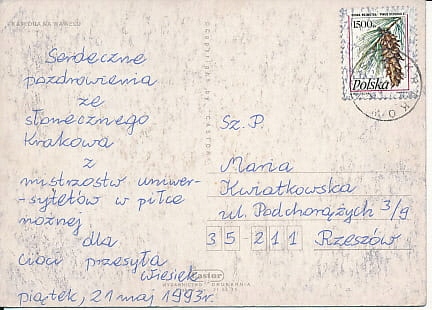 KATEDRA NA WAWELU
Serdeczne
pozdrowienia
ze
słonecznego
Krakowa
z
mistrzostw uniwer-
-sytetów w piłce
nożnej
dla
cioci przesyła
Wiesiek
piątek, 21 maj 1993r.
copyright by "CASTOR"
1500 zł
Polska
Sz. P.
Maria
Kwiatkowska
ul. Podchorążych 3/9
35-211 Rzeszów
Castor
WYDAWNICTWO DRUKARNIA